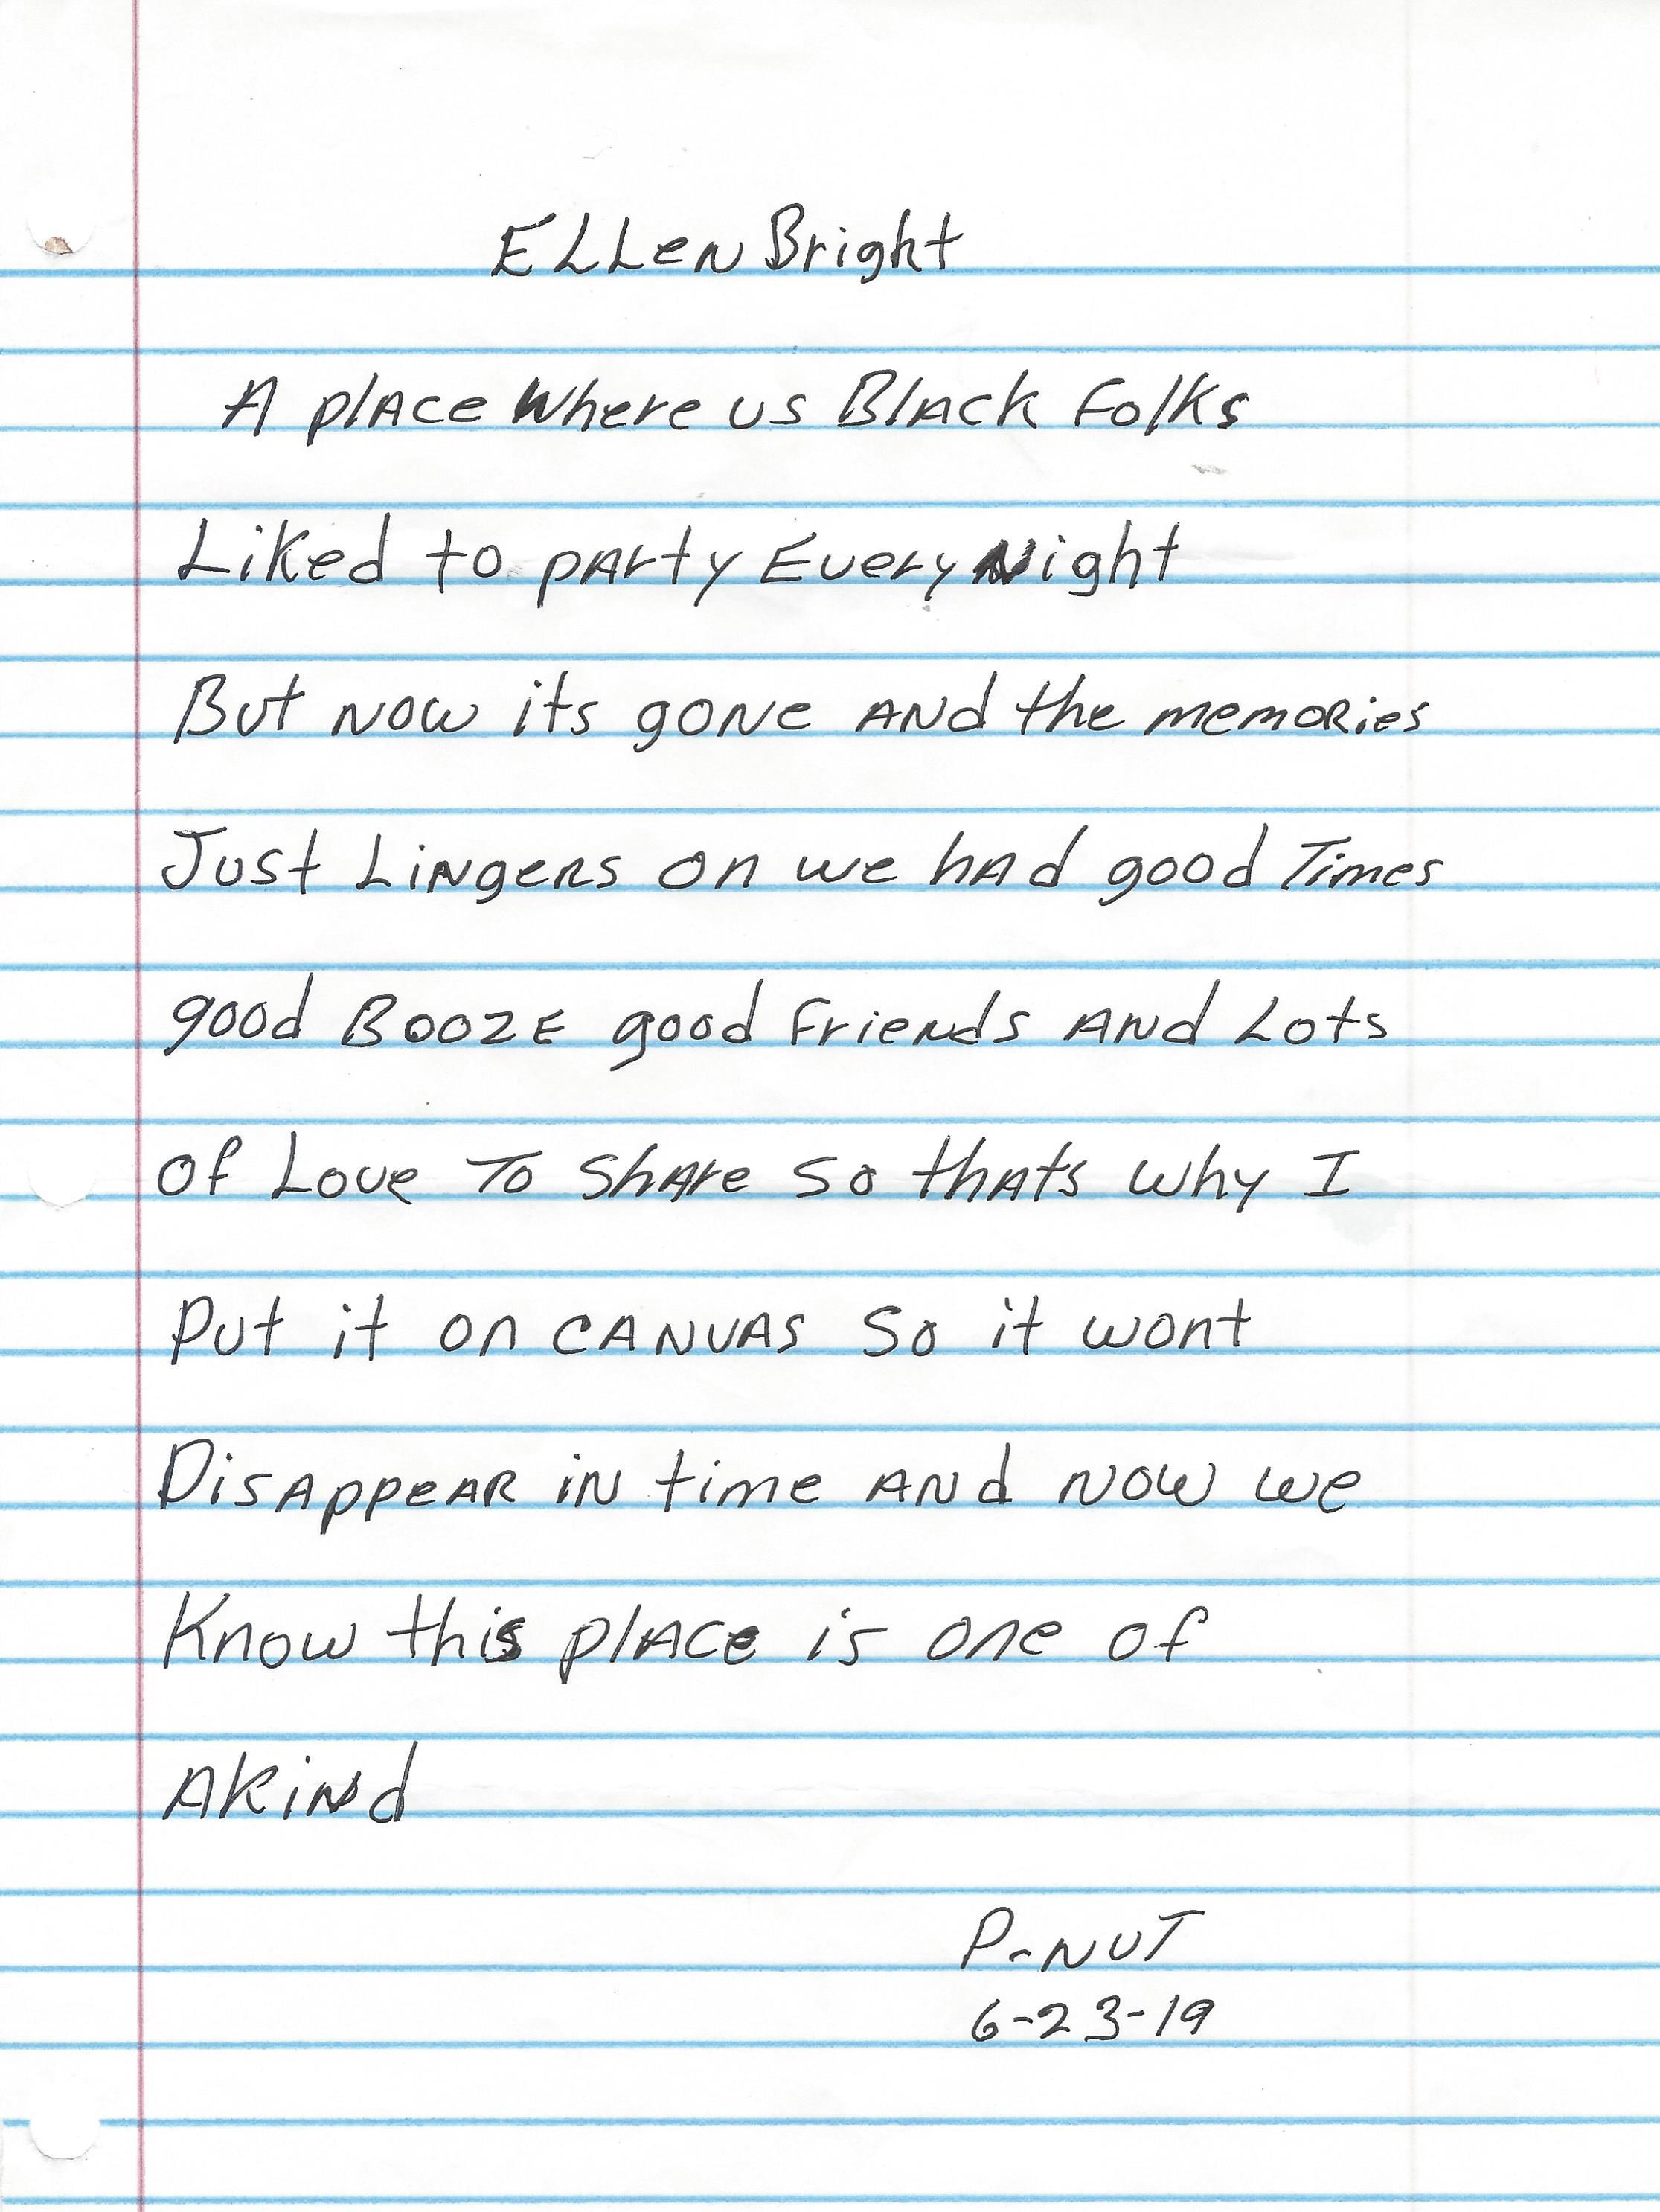 ELLEN Bright
A plAce Where us BlAck Folks
Liked to pArty Every Night
But NOW its gONe ANd the memORies
Just LiNgeRS on we hAd good Times
good BOOZE good FrieNds ANd Lots
Of Love To ShAre So thAts why I
Put it on CANVAS So it wont
DisAppeAR iN time ANd NOW we
Know this plAce is one of
AkiNd
P-NUT
6-23-19